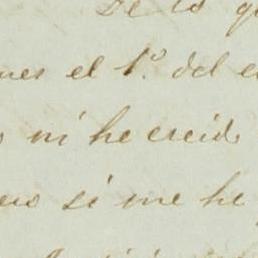 De lo q
nes el 1º. del c
ni he creido
ero si me he